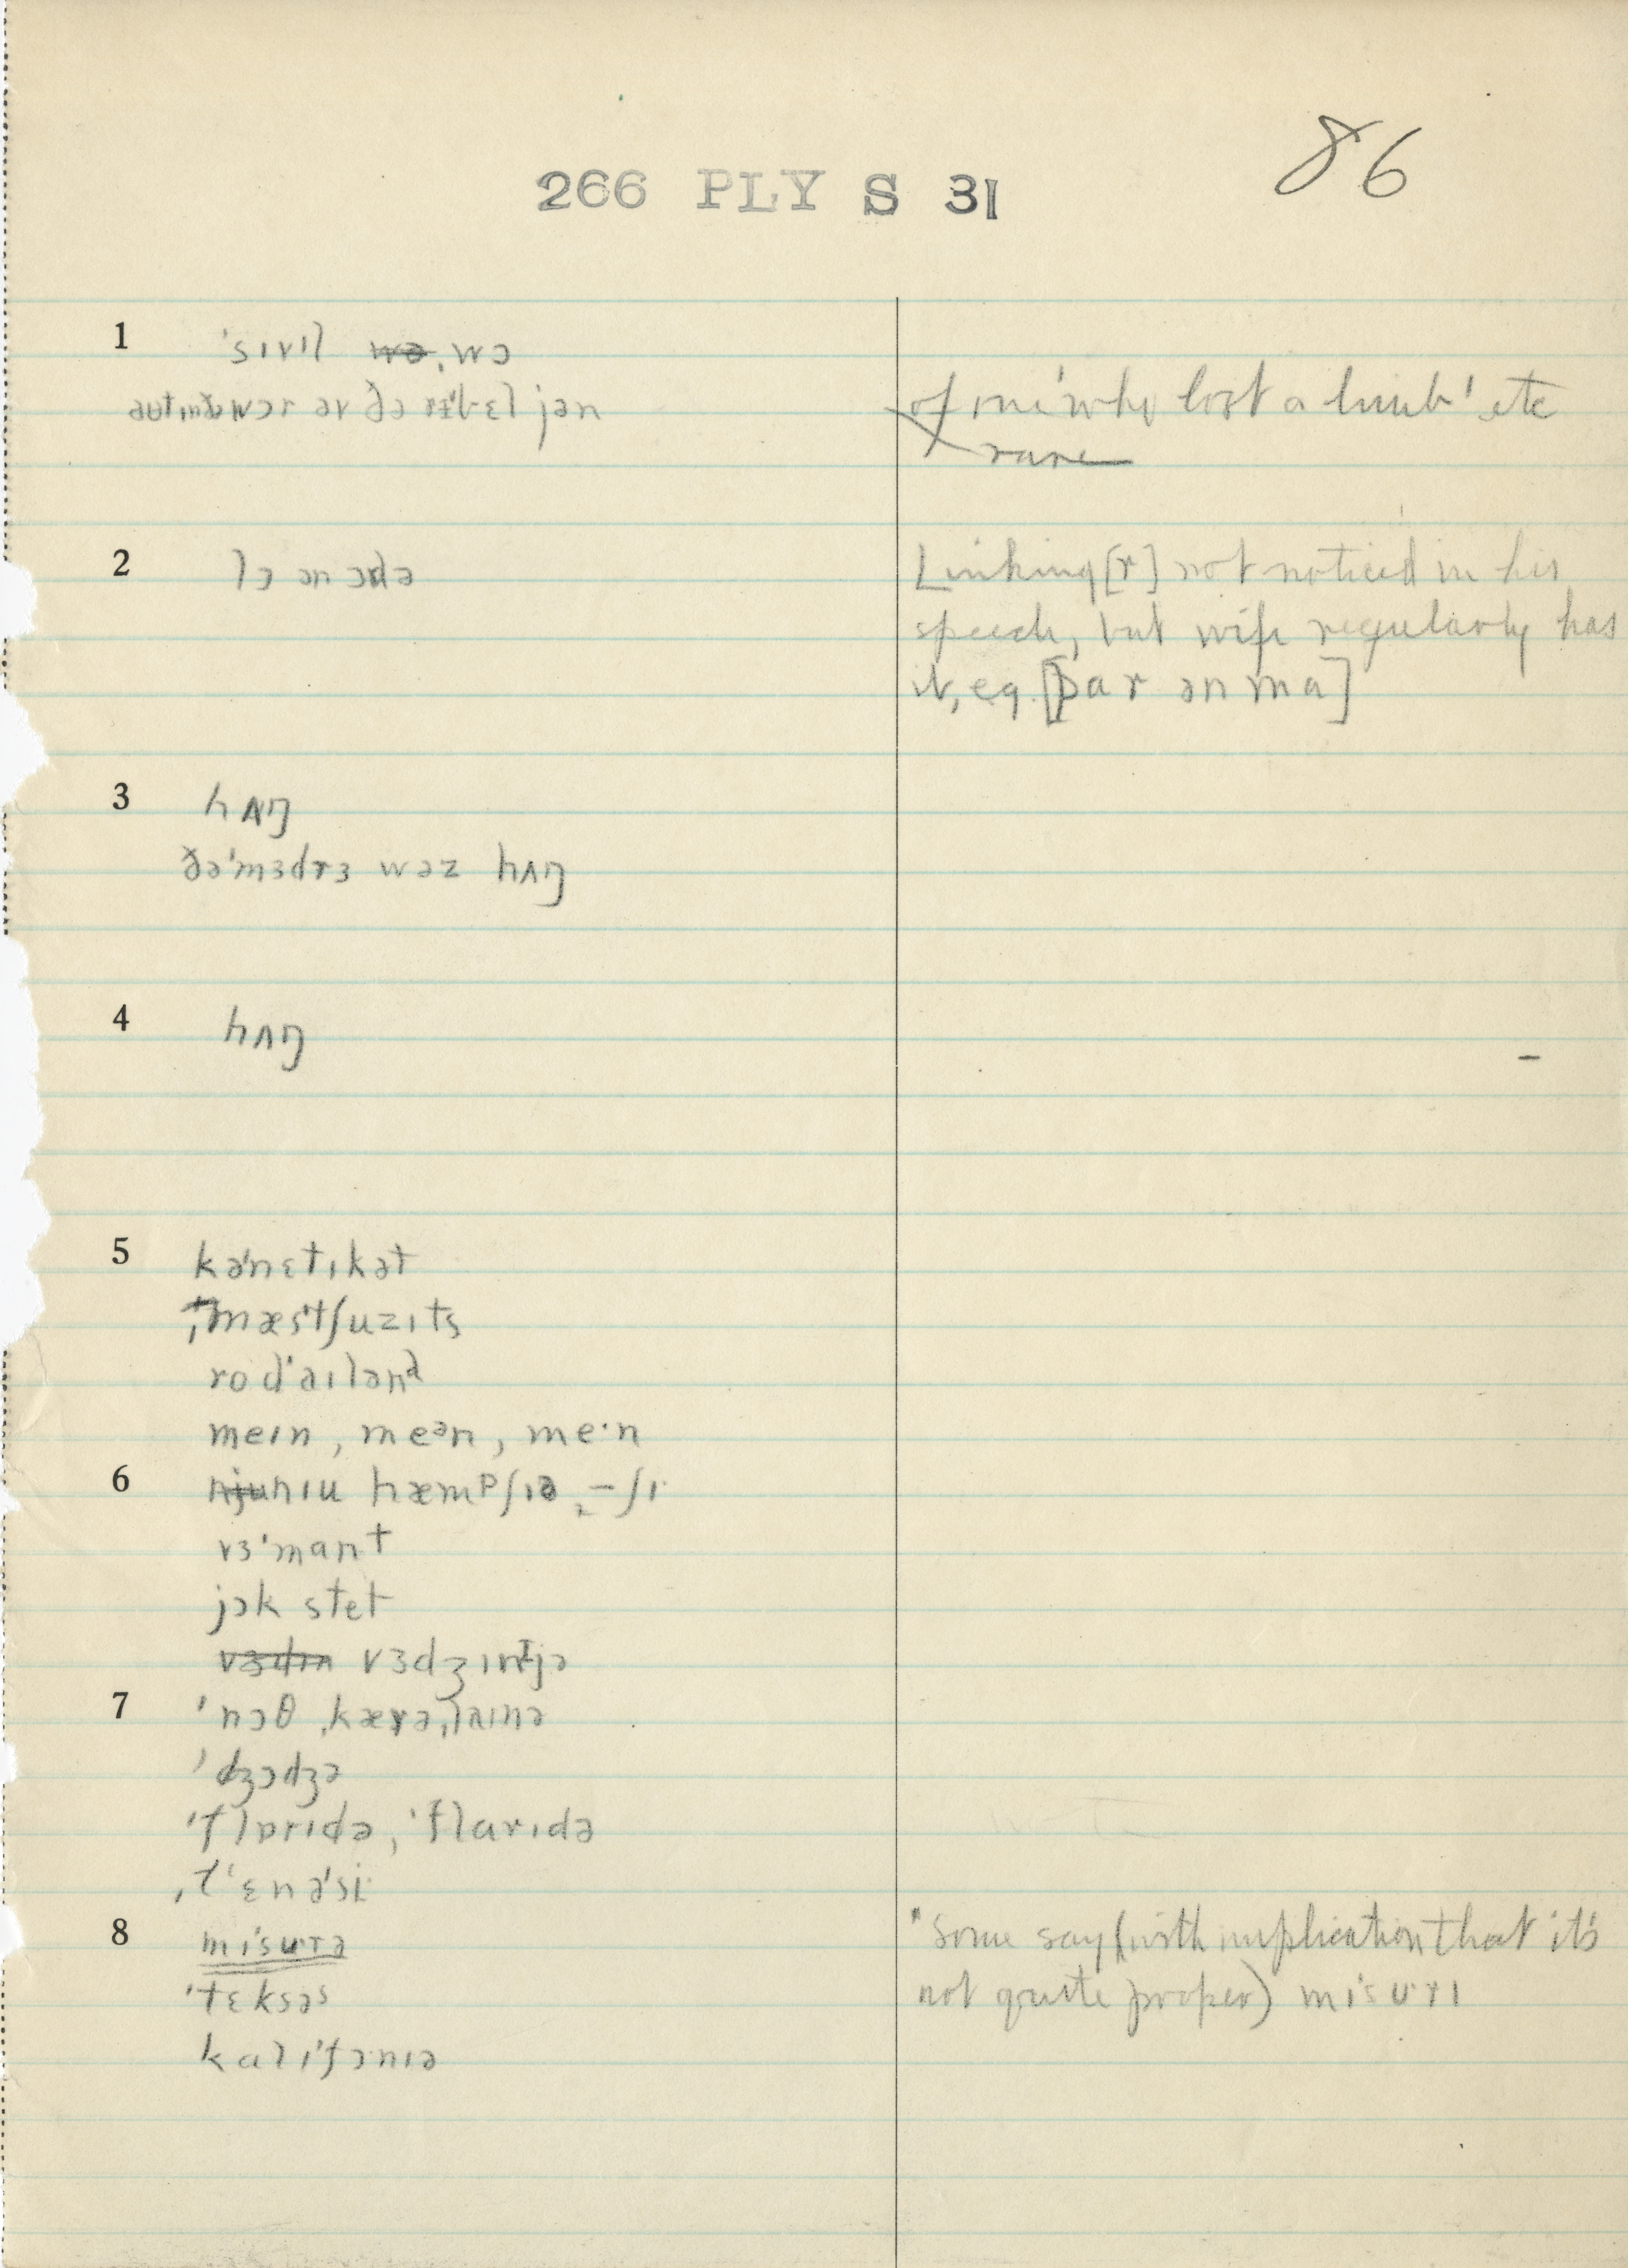 86
266 PLY S 31
1 ˈsɪvɪl wə, wɔ
wɔr əv ðə rɪˈbɛljən
of one 'who lost a limb' etc
rare
2 lɔ ən ɔdə
Linking [r] not noticed in his
speech, but wife regularly has
it, eg. [par ən ma]
3 hʌŋ
ðəˈmɜdrɜ wəz hʌŋ
4 hʌŋ
5 kəˈnɛtɪkət
ˌmæsˈtʃuzɪts
rodˈaɪlənᵈ
meɪn, meᵊn, me·n
6 nju nɪu hæmᵖʃɪə, –ʃɪ
vɜˈmant
jɔk stet
vɜdɪn vɜdʒɪnɪjə
7 ˈnɔθ ˌkærəˌlaɪnə
ˈdʒɔdʒə
ˈflɒrɪdə, ˈflarɪdə
ˌtˈɛnəˈsi
8 mɪˈsurə
ˈtɛksəs
kalɪˈfɔnɪə
"some say (with implication that it's
not quite proper) mɪˈsurɪ